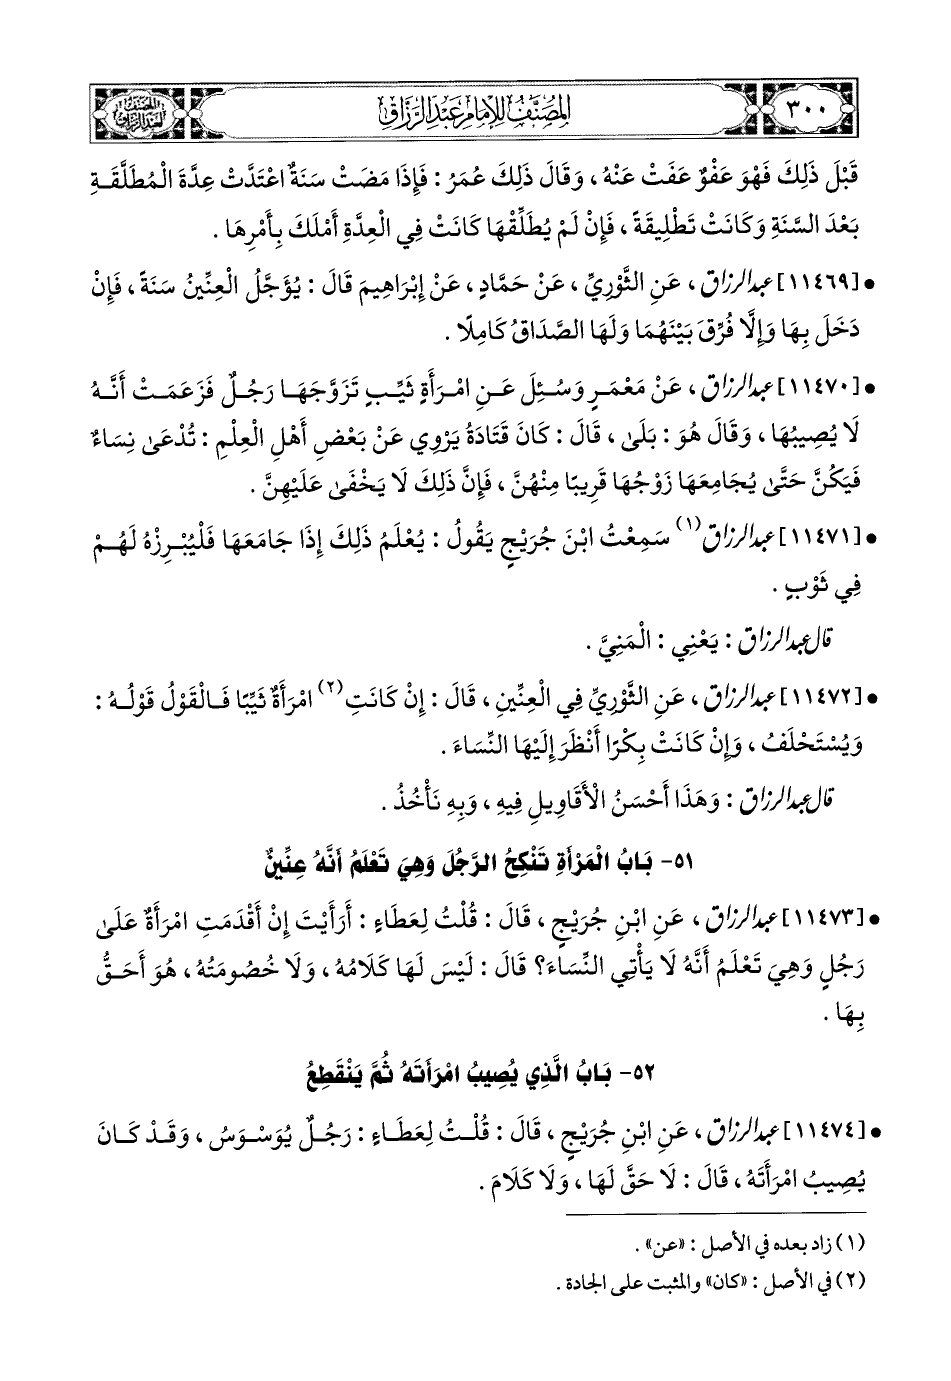 ٣٠٠
المصنف للإمام عبد الرزاق
المصنف لعبد الرزاق
قَبْلَ ذَلِكَ فَهُوَ عَفْوٌ عَفَتْ عَنْهُ ، وَقَالَ ذَلِكَ عُمَرُ : فَإِذَا مَضَتْ سَنَةٌ اعْتَدَّتْ عِدَّةَ الْمُطَلَّقَةِ
بَعْدَ السَّنَةِ وَكَانَتْ تَطْلِيقَةً ، فَإِنْ لَمْ يُطَلِّقْهَا كَانَتْ فِي الْعِدَّةِ أَمْلَكَ بِأَمْرِهَا .
• [١١٤٦٩] عبد الرزاق ، عَنِ الثَّوْرِيِّ ، عَنْ حَمَّادٍ ، عَنْ إِبْرَاهِيمَ قَالَ : يُؤَجَّلُ الْعِنِّينُ سَنَةً ، فَإِنْ
دَخَلَ بِهَا وَإِلَّا فُرِّقَ بَيْنَهُمَا وَلَهَا الصَّدَاقُ كَامِلًا .
• [١١٤٧٠] عبد الرزاق ، عَنْ مَعْمَرٍ وَسُئِلَ عَنِ امْرَأَةٍ ثَيِّبٍ تَزَوَّجَهَا رَجُلٌ فَزَعَمَتْ أَنَّهُ
لَا يُصِيبُهَا ، وَقَالَ هُوَ : بَلَى ، قَالَ : كَانَ قَتَادَةُ يَرْوِي عَنْ بَعْضِ أَهْلِ الْعِلْمِ : تُدْعَى نِسَاءٌ
فَيَكُنَّ حَتَّى يُجَامِعَهَا زَوْجُهَا قَرِيبًا مِنْهُنَّ ، فَإِنَّ ذَلِكَ لَا يَخْفَى عَلَيْهِنَّ .
• [١١٤٧١] عبد الرزاق(١) سَمِعْتُ ابْنَ جُرَيْجٍ يَقُولُ : يُعْلَمُ ذَلِكَ إِذَا جَامَعَهَا فَلْيُبْرِزْهُ لَهُمْ
فِي ثَوْبٍ .
قال عبد الرزاق : يَعْنِي : الْمَنِيَّ .
• [١١٤٧٢] عبد الرزاق ، عَنِ الثَّوْرِيِّ فِي الْعِنِّينِ ، قَالَ : إِنْ كَانَتِ(٢) امْرَأَةٌ ثَيِّبًا فَالْقَوْلُ قَوْلُهُ :
وَيُسْتَحْلَفُ ، وَإِنْ كَانَتْ بِكْرًا أَنْظَرَ إِلَيْهَا النِّسَاءَ .
قال عبد الرزاق : وَهَذَا أَحْسَنُ الْأَقَاوِيلِ فِيهِ ، وَبِهِ نَأْخُذُ .
٥١- بَابُ الْمَرْأَةِ تَنْكِحُ الرَّجُلَ وَهِيَ تَعْلَمُ أَنَّهُ عِنِّينٌ
• [١١٤٧٣] عبد الرزاق ، عَنِ ابْنِ جُرَيْجٍ ، قَالَ : قُلْتُ لِعَطَاءٍ : أَرَأَيْتَ إِنْ أَقْدَمَتِ امْرَأَةٌ عَلَى
رَجُلٍ وَهِيَ تَعْلَمُ أَنَّهُ لَا يَأْتِي النِّسَاءَ؟ قَالَ : لَيْسَ لَهَا كَلَامُهُ ، وَلَا خُصُومَتُهُ ، هُوَ أَحَقُّ
بِهَا .
٥٢- بَابُ الَّذِي يُصِيبُ امْرَأَتَهُ ثُمَّ يَنْقَطِعُ
• [١١٤٧٤] عبد الرزاق ، عَنِ ابْنِ جُرَيْجٍ ، قَالَ : قُلْتُ لِعَطَاءٍ : رَجُلٌ يُوَسْوَسُ ، وَقَدْ كَانَ
يُصِيبُ امْرَأَتَهُ ، قَالَ : لَا حَقَّ لَهَا ، وَلَا كَلَامَ .
(١) زاد بعده في الأصل : «عن» .
(٢) في الأصل : «كان» والمثبت على الجادة .